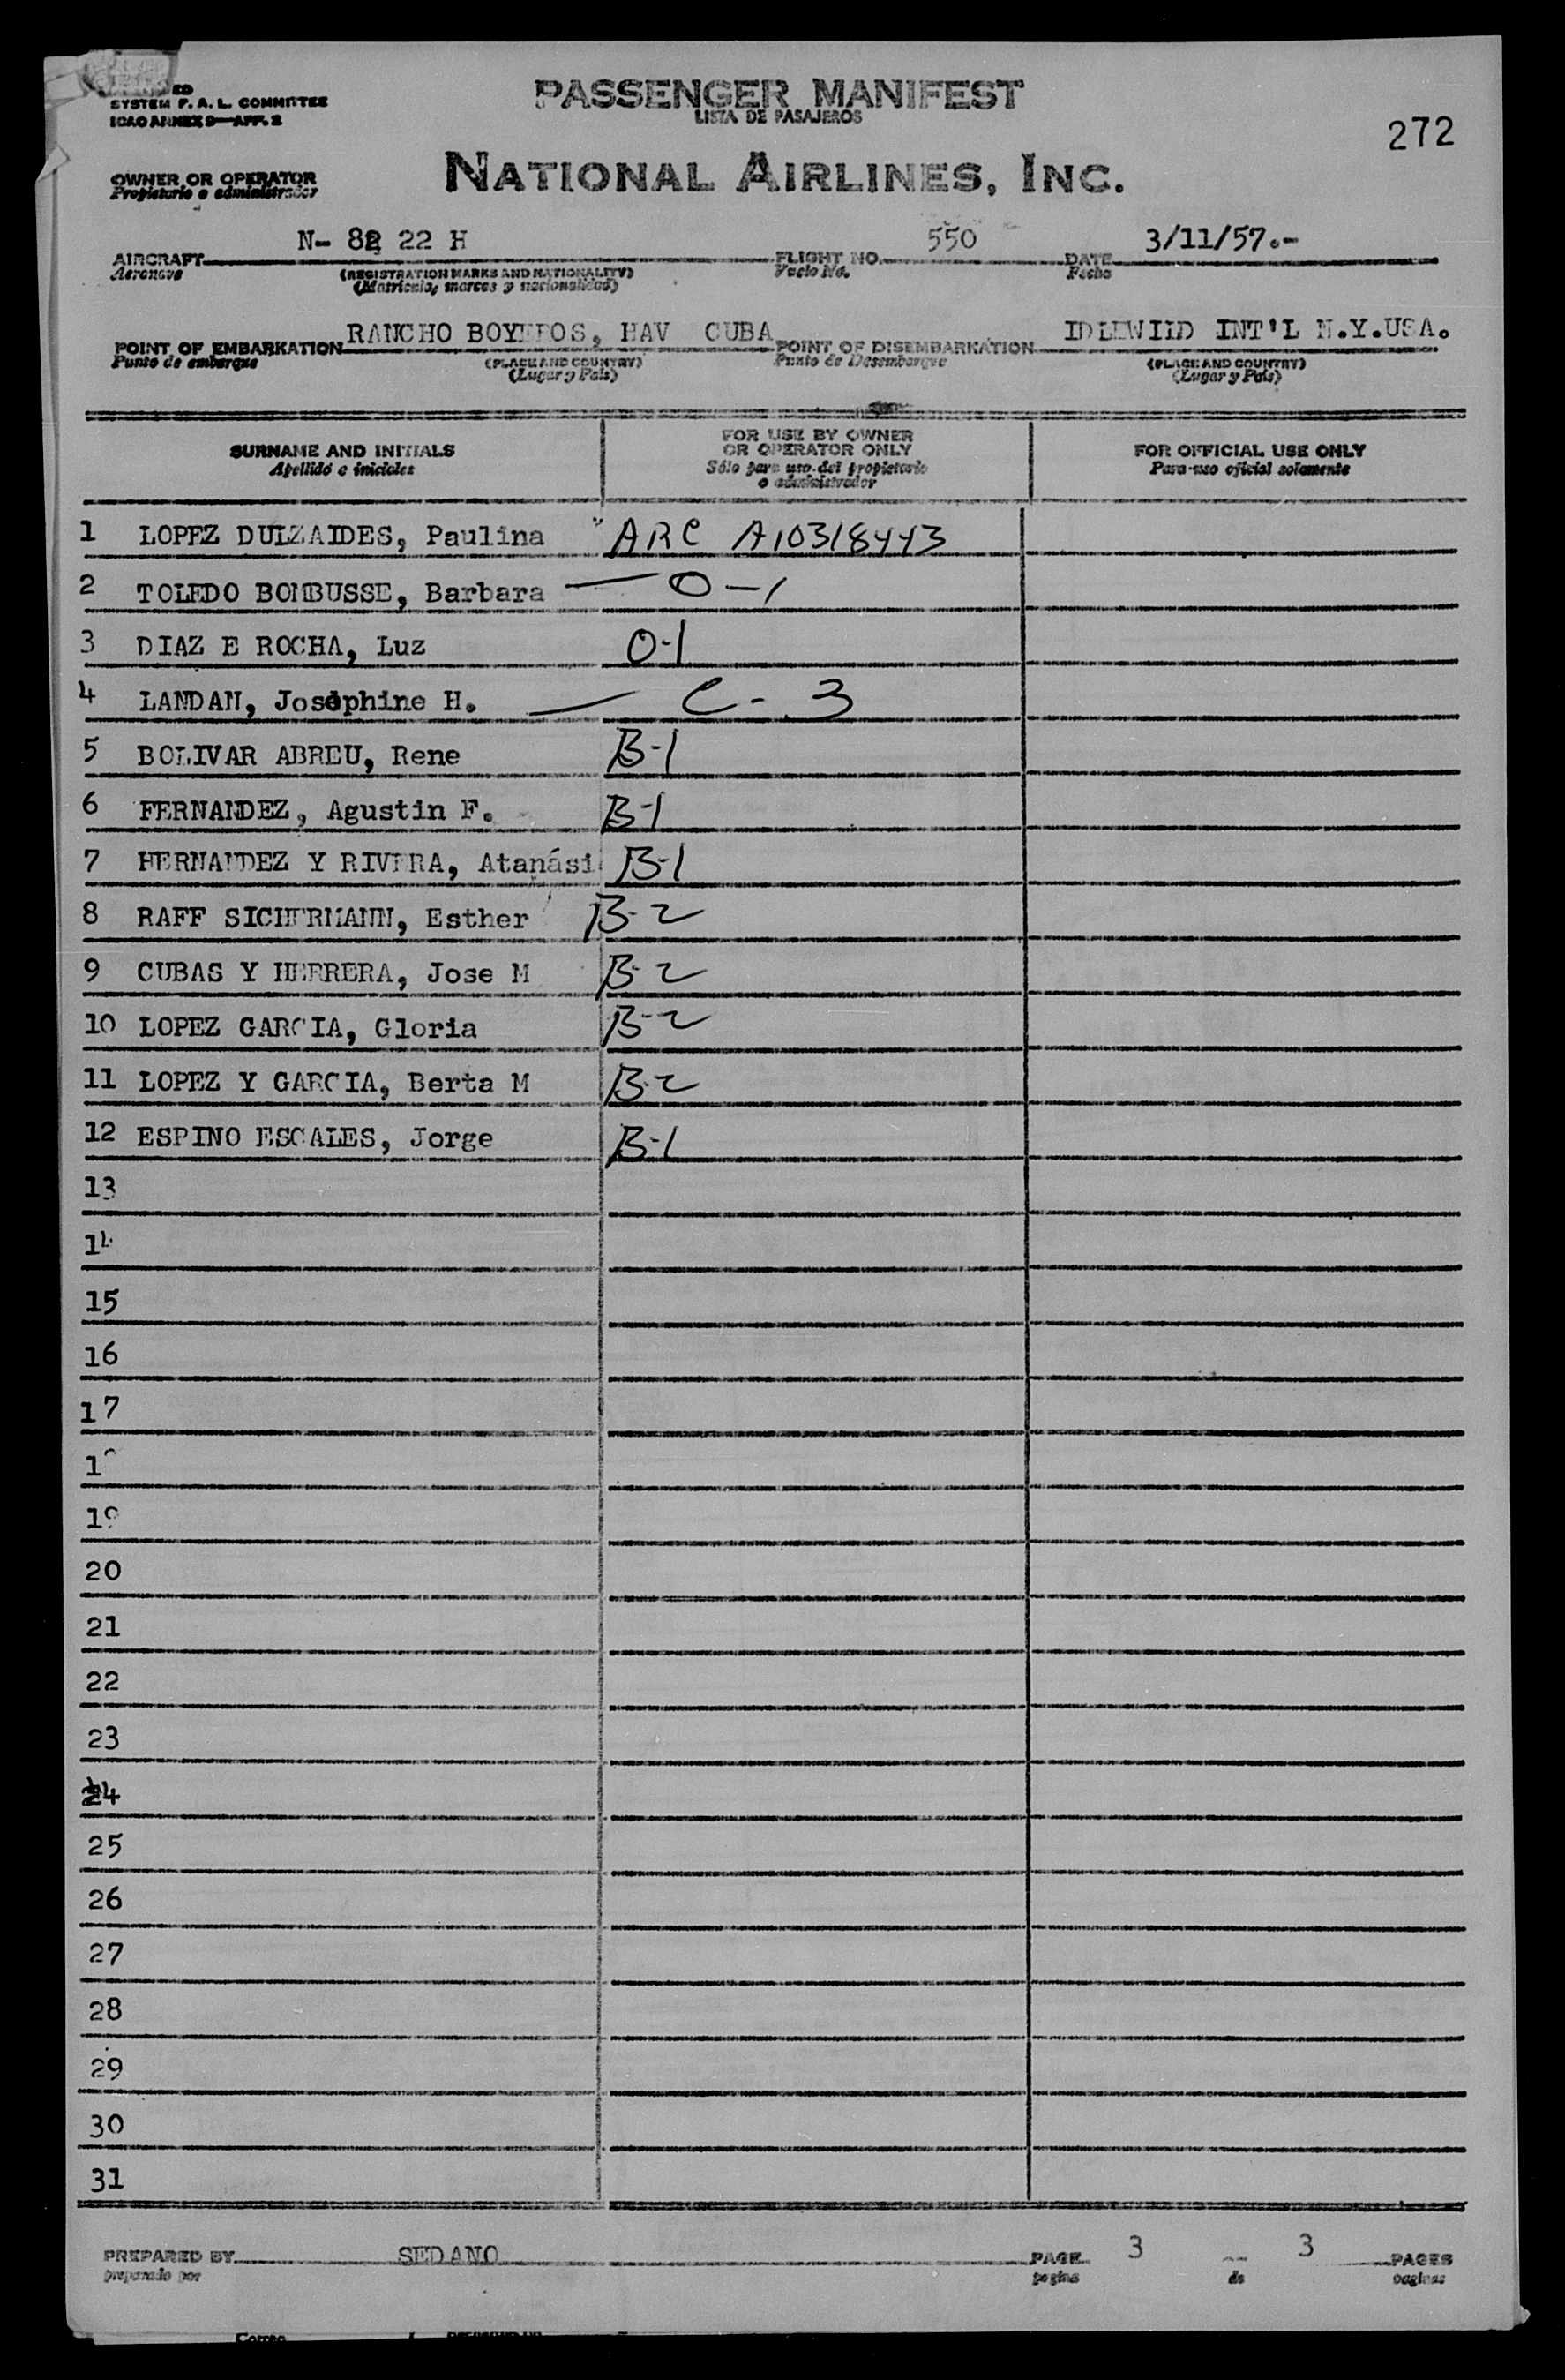 SYSTEM F. A. L. COMMITTEE
ICAO ANNEX 9—APP. 2
PASSENGER MANIFEST
LISTA DE PASAJEROS
272
OWNER OR OPERATOR
Propietario o administrador
NATIONAL AIRLINES, INC.
N- 82 22 H 550 3/11/57.-
AIRCRAFT FLIGHT NO. DATE
Aeronave (REGISTRATION MARKS AND NATIONALITY) Vuelo No. Fecha
(Matricula, marcas y nacionalidad)
RANCHO BOYEROS, HAV CUBA IDLEWILD INT'L N.Y.USA.
POINT OF EMBARKATION POINT OF DISEMBARKATION
Punto de embarque (PLACE AND COUNTRY) Punto de Desembarque (PLACE AND COUNTRY)
(Lugar y País) (Lugar y País)
SURNAME AND INITIALS
Apellido e iniciales
FOR USE BY OWNER
OR OPERATOR ONLY
Sólo para uso del propietario
o administrador
FOR OFFICIAL USE ONLY
Para uso oficial solamente
1 LOPEZ DULZAIDES, Paulina ARC A10318443
2 TOLEDO BOMBUSSE, Barbara — O-1
3 DIAZ E ROCHA, Luz O-1
4 LANDAN, Josephine H. — C-3
5 BOLIVAR ABREU, Rene B-1
6 FERNANDEZ, Agustin F. B-1
7 HERNANDEZ Y RIVERA, Atanási B-1
8 RAFF SICHERMANN, Esther B-2
9 CUBAS Y HERRERA, Jose M B-2
10 LOPEZ GARCIA, Gloria B-2
11 LOPEZ Y GARCIA, Berta M B-2
12 ESPINO ESCALES, Jorge B-1
13
14
15
16
17
18
19
20
21
22
23
24
25
26
27
28
29
30
31
PREPARED BY SEDANO PAGE 3 3 PAGES
preparado por pagina de paginas
Correo